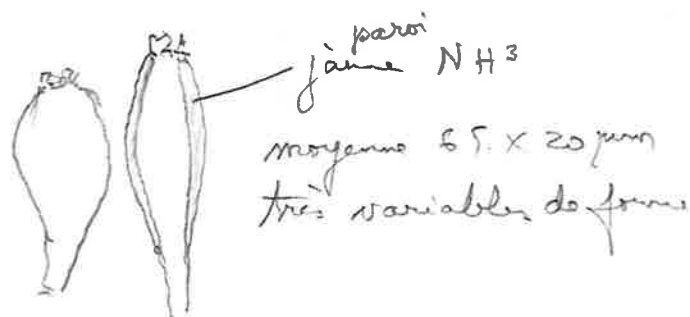 paroi
jaune NH³
moyenne 65 x 20 µm
très variables de forme